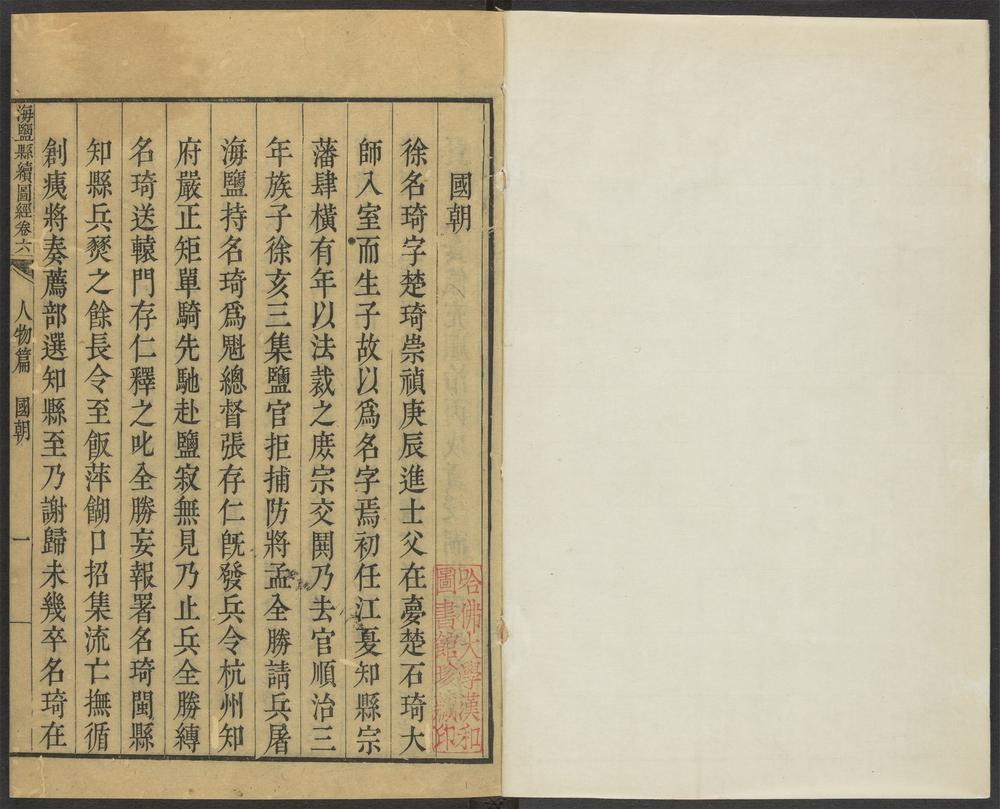 國朝
徐名琦字楚琦崇禎庚辰進士父在夢楚石琦大
師入室而生子故以爲名字焉初任江夏知縣宗
藩肆橫有年以法裁之庻宗交閧乃去官順治三
年族子徐亥三集鹽官拒捕防將孟全勝請兵屠
海鹽持名琦爲魁總督張存仁旣發兵令杭州知
府嚴正矩單騎先馳赴鹽寂無見乃止兵全勝縛
名琦送轅門存仁釋之叱全勝妄報署名琦閩縣
知縣兵燹之餘長令至飯萍餬口招集流亡撫循
創痍將奏薦部選知縣至乃謝歸未幾卒名琦在
海鹽縣續圖經卷六 人物篇 國朝 一
哈佛大學漢和
圖書館珍藏印